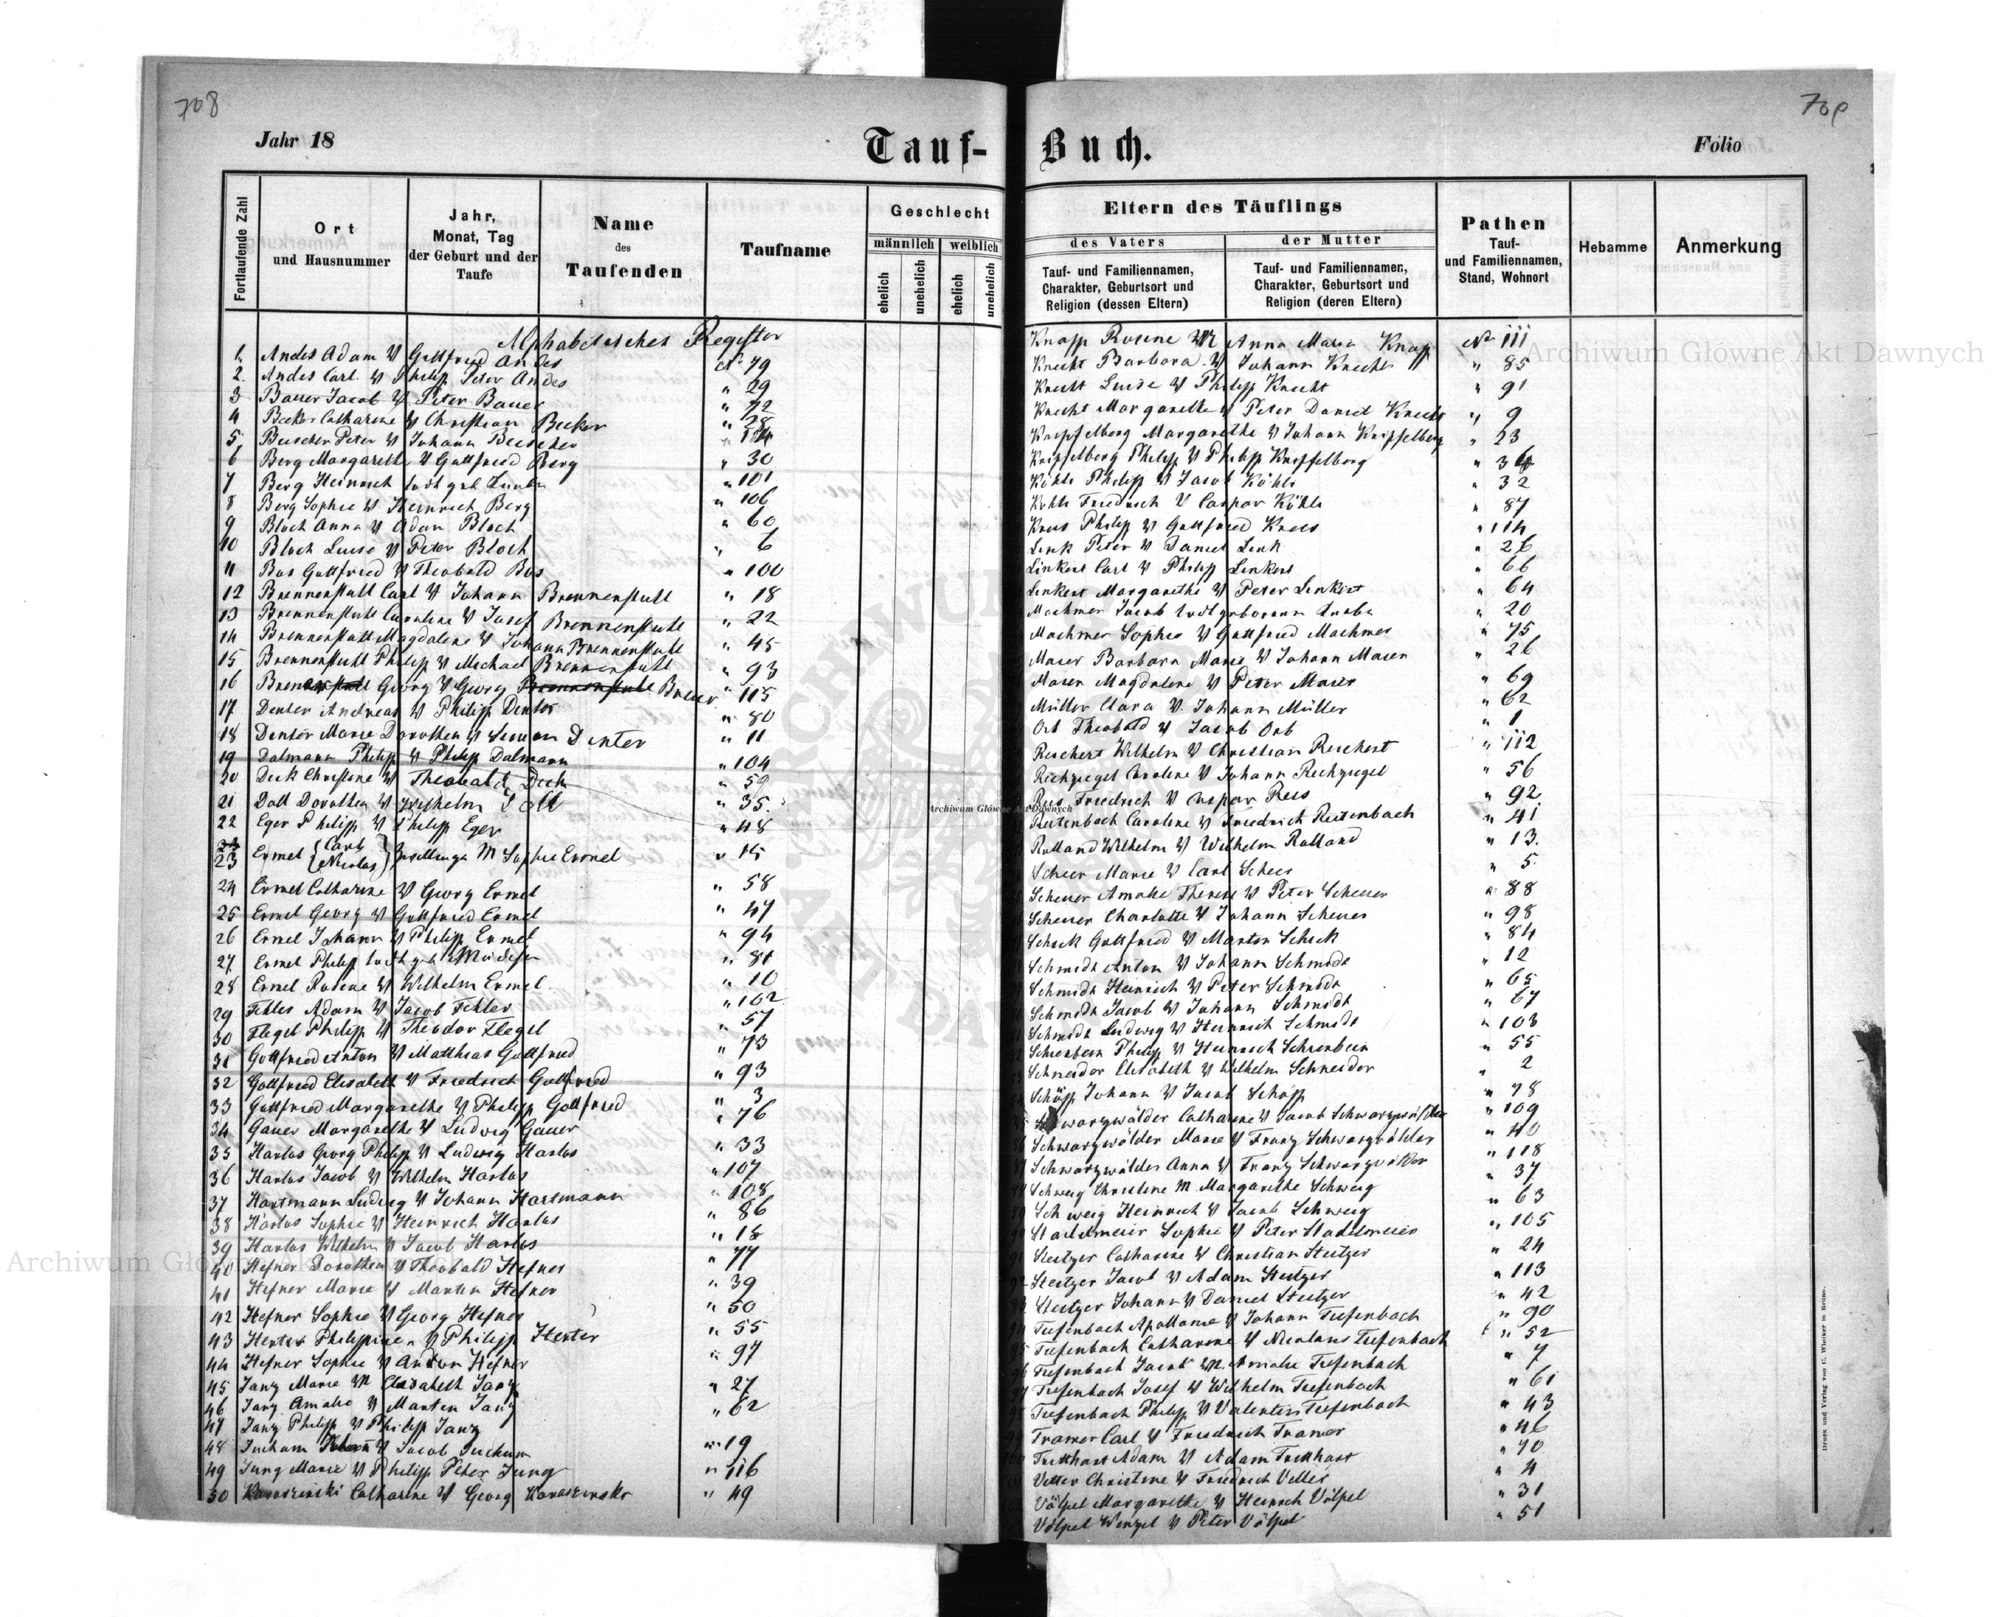 708
Jahr 18
Tauf-
Fortlaufende Zahl
Ort
und Hausnummer
Jahr,
Monat, Tag
der Geburt und der
Taufe
Name
des
Taufenden
Taufname
Geschlecht
männlich
weiblich
ehelich
unehelich
ehelich
unehelich
Alphabetisches Register
1. Andes Adam V Gottfried Andes No 79
2. Andes Carl V Philipp Peter Andes " 29
3 Bauer Jacob V Peter Bauer " 72
4 Becker Catharine V Christian Becker " 28
5 Buscher Peter V Johann Buscher
6 Berg Margarethe V Gottfried Berg " 30
7 Berg Heinrich " 101
8 Berg Sophie V Heinrich Berg " 106
9 Bloch Anna V Adam Bloch " 60
10 Bloch Luise V Peter Bloch " 6
11 Bos Gottfried V Theobald Bos " 100
12 Brennenstuhl Carl V Johann Brennenstuhl " 18
13 Brennenstuhl Caroline V Josef Brennenstuhl " 22
14 Brennenstuhl Magdalene V Johann Brennenstuhl " 45
15 Brennenstuhl Philipp V Michael Brennenstuhl " 93
16 Georg V Georg " 115
17 Denter Andreas V Philipp Denter " 80
18 Denter Marie Dorothea V Simon Denter " 11
19 Dalmann Philipp V Philipp Dalmann " 104
20 Dick Christine V Theobald Dick " 59
21 Doll Dorothea V Wilhelm Doll " 35
22 Eger Philipp V Philipp Eger " 48
23 Ermel Carl Nicolas Zwillinge M Sophie Ermel " 15
24 Ermel Catharine V Georg Ermel " 58
25 Ermel Georg V Gottfried Ermel " 47
26 Ermel Johann V Philipp Ermel " 94
27 Ermel Philipp " 81
28 Ermel Rosine V Wilhelm Ermel " 10
29 Fehler Adam V Jacob Fehler " 102
30 Flegel Philipp V Theodor Flegel " 57
31 Gottfried Anton V Matthias Gottfried " 73
32 Gottfried Elisabeth V Friedrich Gottfried " 93
33 Gottfried Margarethe V Philipp Gottfried " 3
34 Gauer Margarethe V Ludwig Gauer " 76
35 Harlos Georg Philipp V Ludwig Harlos " 33
36 Harlos Jacob V Wilhelm Harlos " 107
37 Hartmann Ludwig V Johann Hartmann " 108
38 Harlos Sophie V Heinrich Harlos " 86
39 Harlos Wilhelm V Jacob Harlos " 18
40 Hefner Dorothea V Theobald Hefner " 77
41 Hefner Marie V Martin Hefner " 39
42 Hefner Sophie V Georg Hefner " 50
43 Hexter Philippine V Philipp Hexter " 55
44 Hefner Sophie V Anton Hefner " 97
45 Janz Marie M Elisabeth Janz " 27
46 Janz Amalie V Martin Janz " 62
47 Janz Philipp V Philipp Janz
48 Juchum V Jacob Juchum " 19
49 Jung Marie V Philipp Peter Jung " 116
50 Karaszenski Catharine V Georg Karaszenski " 49
709
Buch.
Folio
Eltern des Täuflings
des Vaters
der Mutter
Tauf- und Familiennamen,
Charakter, Geburtsort und
Religion (dessen Eltern)
Tauf- und Familiennamen,
Charakter, Geburtsort und
Religion (deren Eltern)
Pathen
Tauf-
und Familiennamen,
Stand, Wohnort
Hebamme
Anmerkung
Knapp Rosine M Anna Maria Knapp No 111
Knecht Barbara V Johann Knecht " 85
Knecht Luise V Philipp Knecht " 91
Knecht Margarethe V Peter Daniel Knecht " 9
Knipfelberg Margarethe V Johann Knipfelberg " 23
Knipfelberg Philipp V Philipp Knipfelberg
Köhle Philipp V Jacob Köhle " 32
Köhle Friedrich V Caspar Köhle " 87
Krees Philipp V Gottfried Krees " 114
Link Peter V Daniel Link " 26
Linkert Carl V Philipp Linkert " 66
Linkert Margarethe V Peter Linkert " 64
Machmer Jacob todtgeborener Knabe " 20
Machmer Sophie V Gottfried Machmer " 75
Maser Barbara Marie V Johann Maser " 26
Maser Magdalene V Peter Maser " 69
Müller Clara V Johann Müller " 62
Ort Theobald V Jacob Ort " 1
Reichert Wilhelm V Christian Reichert " 112
Rechziegel Caroline V Johann Rechziegel " 56
Rees Friedrich V Caspar Rees " 92
Reitenbach Caroline V Friedrich Reitenbach " 41
Rolland Wilhelm V Wilhelm Rolland " 13.
Scheer Marie V Carl Scheer " 5
Scheuer Amalie Therese V Peter Scheuer " 88
Scheuer Charlotte V Johann Scheuer " 98
Schick Gottfried V Martin Schick " 84
Schmidt Anton V Johann Schmidt " 12
Schmidt Heinrich V Peter Schmidt " 65
Schmidt Jacob V Johann Schmidt " 67
Schmidt Ludwig V Heinrich Schmidt " 103
Schienbein Philipp V Heinrich Schienbein " 55
Schneider Elisabeth V Wilhelm Schneider " 2
Schöpp Johann V Jacob Schöpp " 78
Schwarzwälder Catharine V Jacob Schwarzwälder " 109
Schwarzwälder Marie V Franz Schwarzwälder " 40
Schwarzwälder Anna V Franz Schwarzwälder " 118
Schweig Christine M Margarethe Schweig " 37
Schweig Heinrich V Jacob Schweig " 63
Stadelmeier Sophie V Peter Stadelmeier " 105
Steitzer Catharine V Christian Steitzer " 24
Steitzer Jacob V Adam Steitzer " 113
Steitzer Johann V Daniel Steitzer " 42
Tiefenbach Apollonie V Johann Tiefenbach " 90
Tiefenbach Catharine V Nicolaus Tiefenbach " 52
Tiefenbach Jacob M. Amalie Tiefenbach " 7
Tiefenbach Josef V Wilhelm Tiefenbach " 61
Tiefenbach Philipp V Valentin Tiefenbach " 43
Tramer Carl V Friedrich Tramer " 46
Trekhart Adam V Adam Trekhart " 70
Vetter Christine V Friedrich Vetter " 4
Völpel Margarethe V Heinrich Völpel " 31
Völpel Wenzel V Peter Völpel " 51
Druck und Verlag von C. Winiker in Brünn.
Archiwum Główne Akt Dawnych
Archiwum Główne Akt Dawnych
Archiwum Główne Akt Dawnych